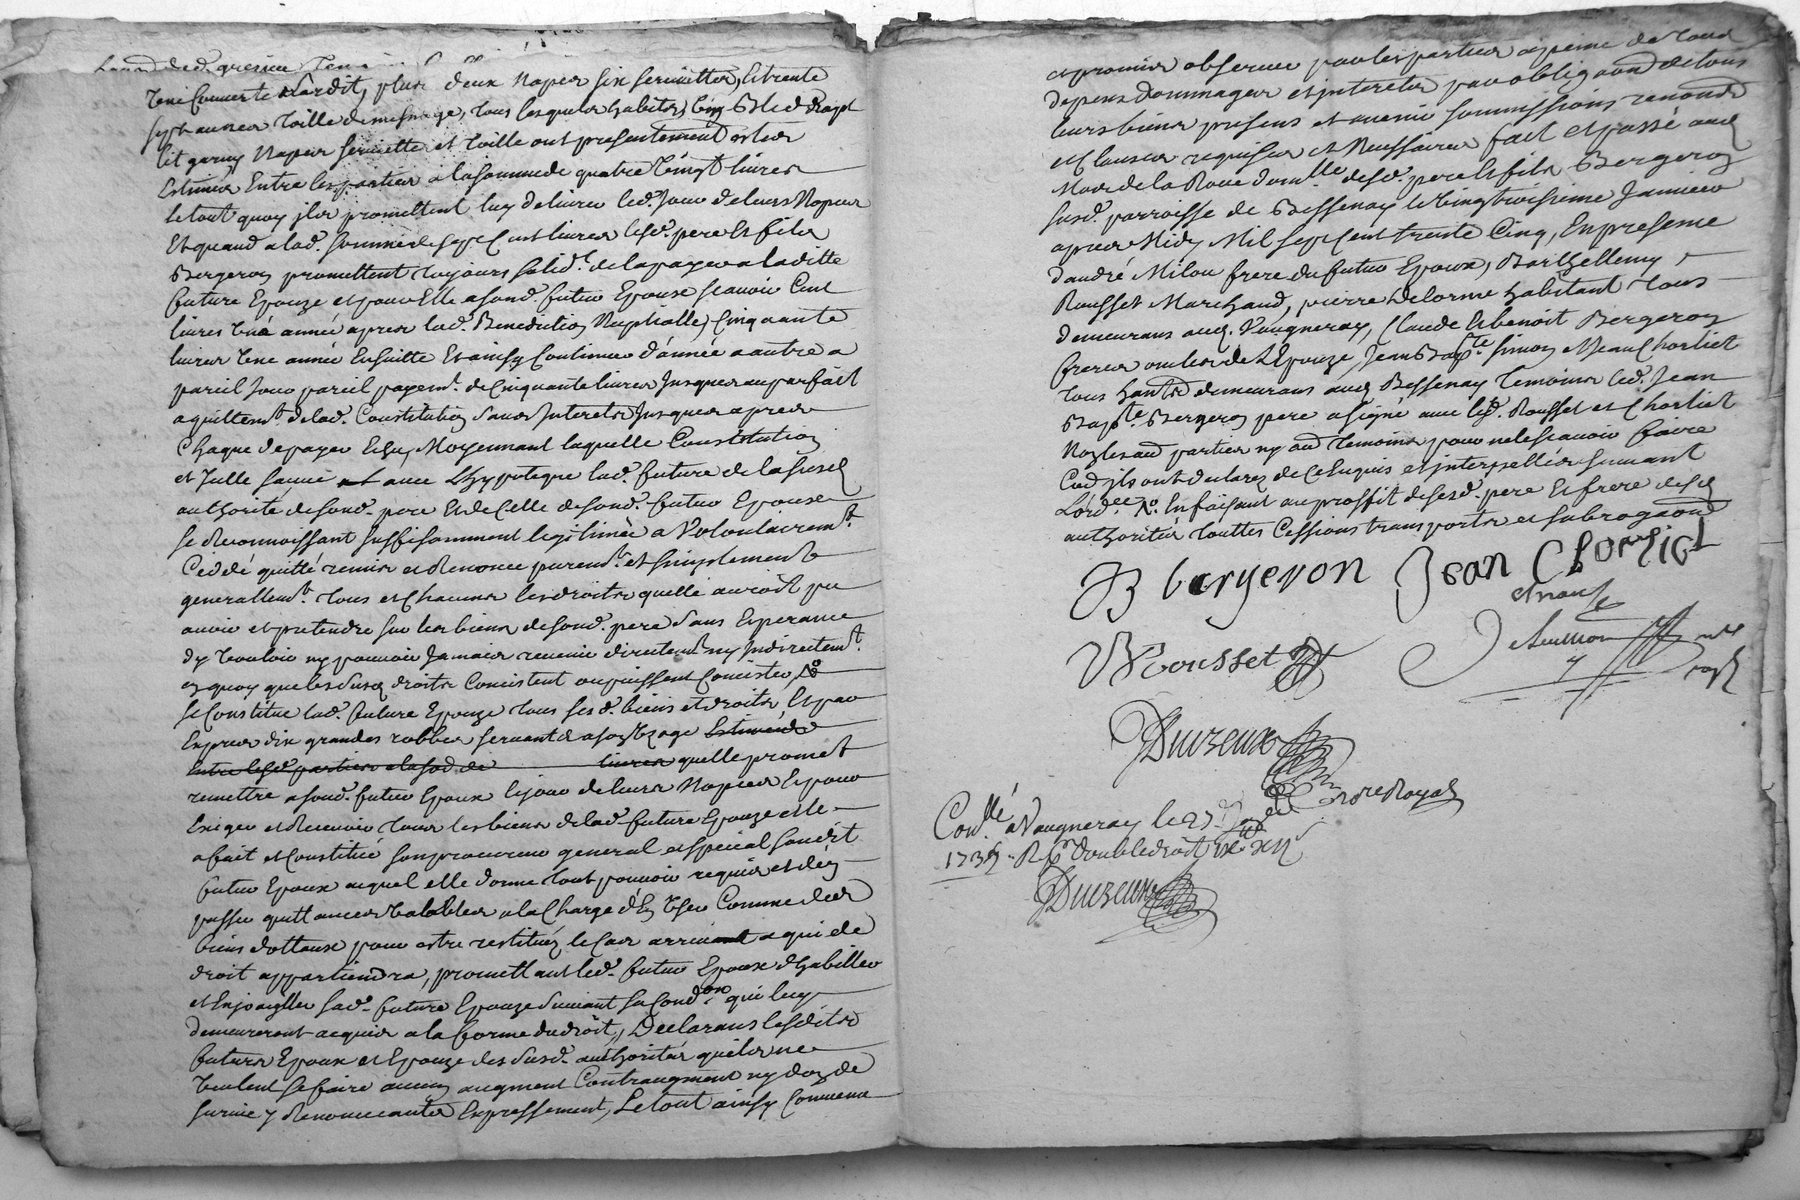 une couverte sardit, plus deux napes six serviettes, et trente
sept aunes toille de mesnage, tous lesquels habits, cinq
lit garny napes serviette et toille ont presentement estées
Estimées Entre les parties a la somme de quatre vingt livres
Le tout quoy ils promettent luy delivrer led. Jour de leurs Nopces
Et quand a lad. somme de sept Cent livres lesd. pere et fils
Bergeron promettent toujours solid.t de la payer a laditte
future Epouze et pour Elle a sond. futur Epoux scavoir Cent
livres une année apres lad. Benediction Nuptialle, Cinquante
livres une année Ensuitte Et ainsy Continuer d'année a autre a
pareil Jour pareil payem.t de Cinquante livres Jusques au parfait
aquittem.t de lad. Constitution sans Interets Jusques apres
Chaque depayer Echu, Moyennant laquelle Constitution
et Jcelle sauvée avec L'hypoteque lad. future de la susd.
authorité de sond. pere Et de Celle de sond. futur Epoux
se Reconnoissant suffisamment legitimée a Volontairem.t
Ceddé quitté remis et Renoncé purem.t et simplement
generallem.t tous et Chacuns les droits quelle auroit pu
avoir et pretendre sur les biens de sond. pere sans Esperance
d'y vouloir ny pouvoir Jamais revenir directem.t ny Indirectem.t
en quoy que lesdusd. droits Concistent ou puissent Concister
se Constitue lad. future Epouze tous sesd. biens et droits, Et par
Expres dix grandes robbes servants a son Uzage Estimées
Entre lesd. parties a la so.e de livres quelle promet
remettre a sond. futur Epoux le jour de leurs Nopces Et pour
Exiger et Recevoir tous les biens de lad. future Epouze elle
a fait et Constitué son procureur general et special sondit
futur Epoux auquel elle donne tout pouvoir requis et d'en
passer quittances valables a la Charge d'En User Comme des
biens dottaux pour estre restitués le Cas arrivant a qui de
droit appartiendra, promettant led. futur Epoux d'habiller
et Enjoailler sad. future Epouze suivant sa Cond.on qui luy
demeureront acquis a la forme du droit, Declarans lesdits
futurs Epoux et Epouze des susd. authorités quils ne
veulent se faire aucun augment Contraugment ny don de
survie y Renonceants Expressement, Le tout ainsy Convenu
et promis observer par les parties a peine de tous
depens dommages et interets par obligaon de tous
leurs biens presens et avenir soumissions renonces
et Clauses requises et Necessaires fait et passé aud.
Mas de la Roue domille desd. pere et fils Bergeron
susd. parroisse de Bessenay le vingt troisieme Janvier
apres Midy Mil sept Cent trente Cinq, En presence
d'andré Milou frere du futur Epoux, Barthellemy
Rousset Marchand, pierre Delorme habitant tous
demeurans aud. Vaugneray, Claude et benoit Bergeron
freres de L'Epouze, Jean Bap.te Simon et Jean Chorliet
tous demeurans aud. Bessenay temoins led. Jean
Bap.te Bergeron pere a signé avec lesd. Rousset et Chorliet
Non les aud. parties ny aud. temoins pour ne le scavoir faire
Co.e ils ont declaré de Ce Enquis et interpellés suivant
L'ord.ce En faisant au proffit desesd. pere Et frere desd.
authorités touttes Cessions transports et subrogaons
B bergeron Jean Chorliet
Rousset
Duizeux
No.re Royal
Con.llé a Vaugneray le 27.
1735. R double droit
Duizeux